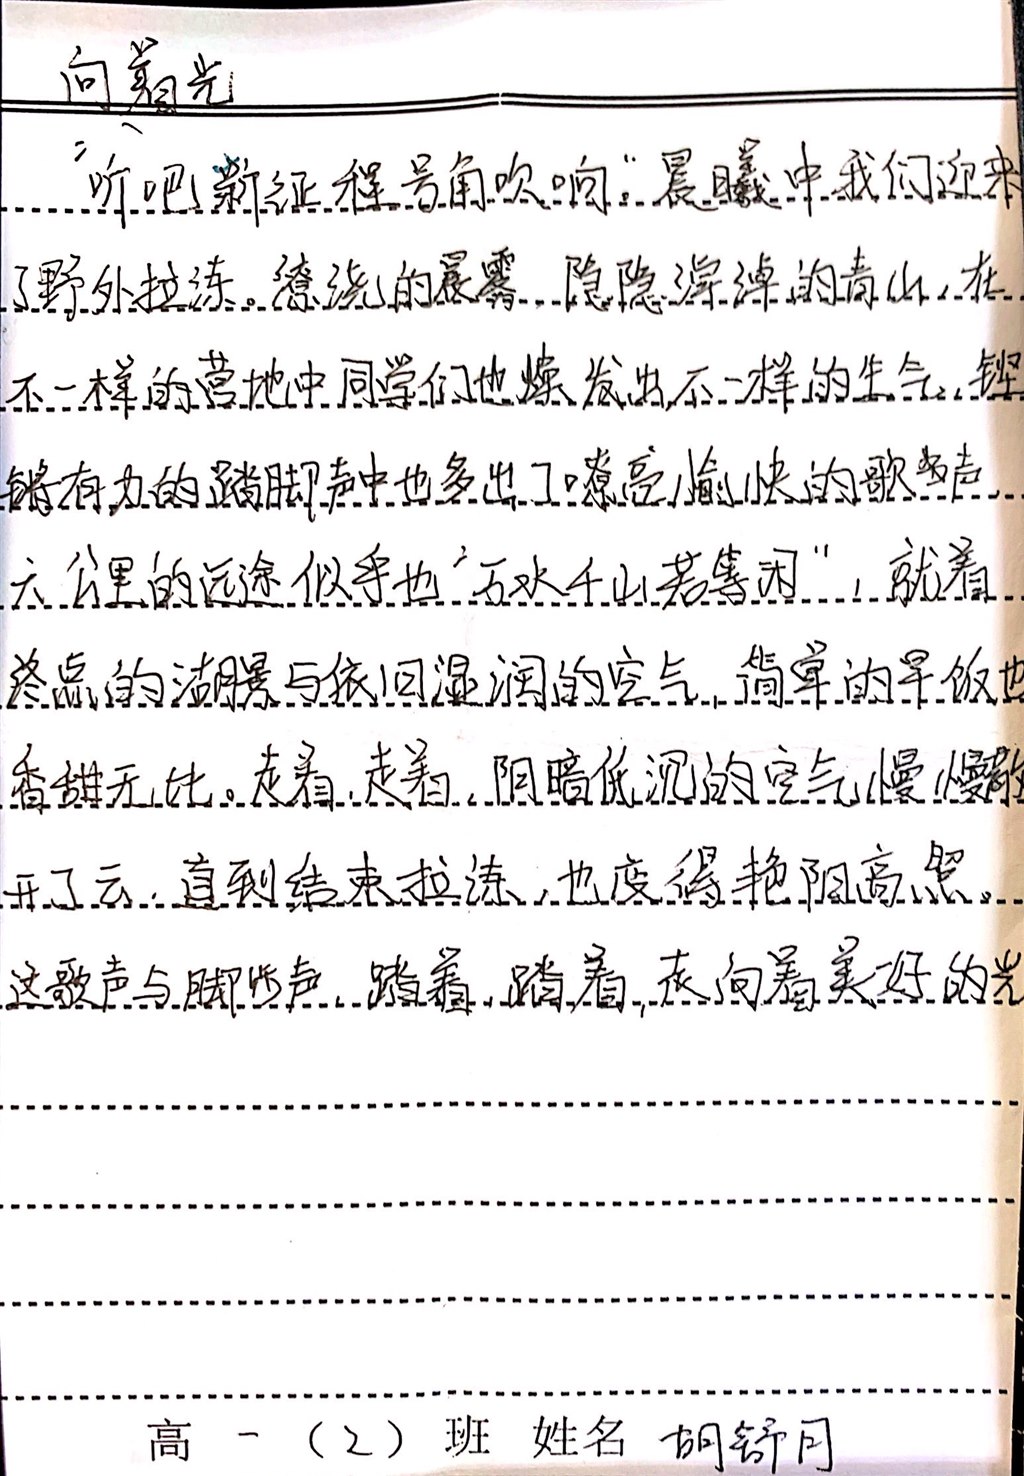 向着光
"听吧!新征程号角吹响。"晨曦中我们迎来
了野外拉练。缭绕的晨雾,隐隐绰绰的青山,在
不一样的营地中同学们也燥发出不一样的生气,铿
锵有力的踏脚声中也多出了嘹亮愉快的歌声
六公里的远途似乎也"万水千山若等闲",就着
终点的湖景与依旧湿润的空气,简单的早饭也
香甜无比。走着,走着,阴暗低沉的空气慢慢散
开了云,直到结束拉练,也变得艳阳高照。
这歌声与脚步声,踏着,踏着,在向着美好的光
高一(2)班 姓名 胡舒月